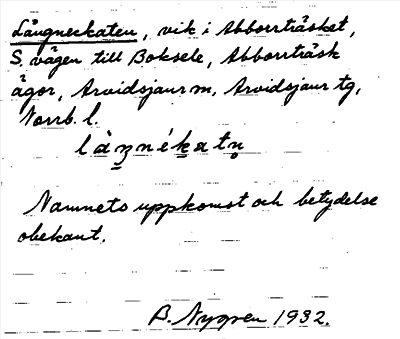 Långneckaten, vik i Abborrträsket,
S. vägen till Boksele, Abborrträsk
ägor, Arvidsjaur m, Arvidsjaur tg,
Norrb. l.
làṉznék̠atn̥
Namnets uppkomst och betydelse
obekant.
B. Nygren 1932.